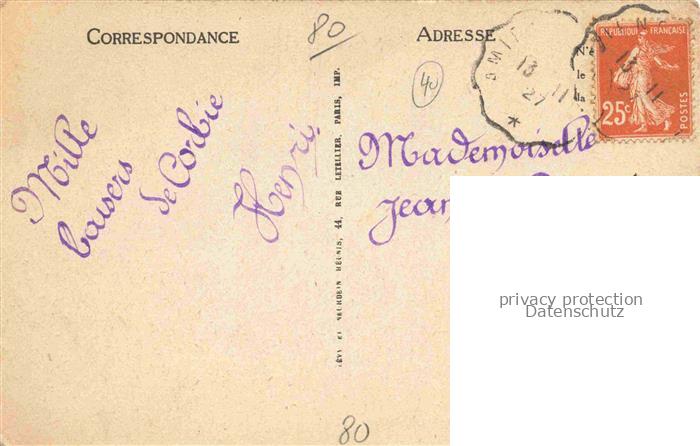 CORRESPONDANCE
80
ADRESSE
40
Mille
baisers
de Corbie
Henri
LÉVY et NEURDEIN RÉUNIS, 44, RUE LETELLIER, PARIS, IMP.
13 11
27
*
RÉPUBLIQUE FRANÇAISE
25c
POSTES
13 11
Mademoiselle
Jean
privacy protection
Datenschutz
80